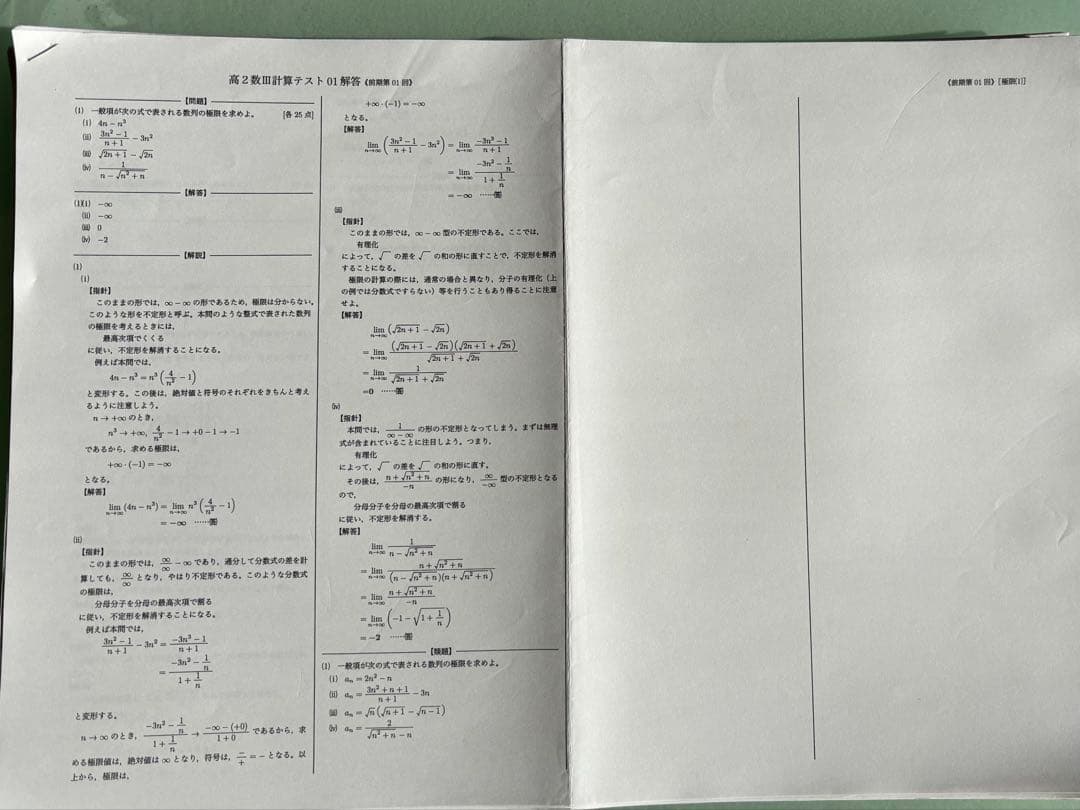 高2数Ⅲ計算テスト01解答《前期第01回》
【問題】
(1) 一般項が次の式で表される数列の極限を求めよ。 [各25点]
(i) 4n − n³
(ii) (3n² − 1)/(n + 1) − 3n²
(iii) √(2n + 1) − √(2n)
(iv) 1/(n − √(n² + n))
【解答】
(1)(i) −∞
(ii) −∞
(iii) 0
(iv) −2
【解説】
(1)
(i)
【指針】
このままの形では，∞ − ∞ の形であるため，極限は分からない。
このような形を不定形と呼ぶ。本問のような整式で表された数列
の極限を考えるときには，
最高次項でくくる
に従い，不定形を解消することになる。
例えば本問では，
4n − n³ = n³(4/n² − 1)
と変形する。この後は，絶対値と符号のそれぞれをきちんと考え
るように注意しよう。
n → +∞ のとき，
n³ → +∞, 4/n² − 1 → +0 − 1 → −1
であるから，求める極限は，
+∞·(−1) = −∞
となる。
【解答】
lim_{n→∞} (4n − n³) = lim_{n→∞} n³(4/n² − 1)
= −∞ ……㊎
(ii)
【指針】
このままの形では，∞/∞ − ∞ であり，通分して分数式の差を計
算しても，∞/∞ となり，やはり不定形である。このような分数式
の極限は，
分母分子を分母の最高次項で割る
に従い，不定形を解消することになる。
例えば本問では，
(3n² − 1)/(n + 1) − 3n² = (−3n³ − 1)/(n + 1)
= (−3n² − 1/n)/(1 + 1/n)
と変形する。
n → ∞ のとき，(−3n² − 1/n)/(1 + 1/n) → (−∞ − (+0))/(1 + 0) であるから，求
める極限値は，絶対値は ∞ となり，符号は，−/+ = − となる。以
上から，極限は，
+∞·(−1) = −∞
となる。
【解答】
lim_{n→∞} ((3n² − 1)/(n + 1) − 3n²) = lim_{n→∞} (−3n³ − 1)/(n + 1)
= lim_{n→∞} (−3n² − 1/n)/(1 + 1/n)
= −∞ ……
(iii)
【指針】
このままの形では，∞ − ∞ 型の不定形である。ここでは，
有理化
によって，√ の差を √ の和の形に直すことで，不定形を解消
することになる。
極限の計算の際には，通常の場合と異なり，分子の有理化（上
の例では分数式ですらない）等を行うこともあり得ることに注意
せよ。
【解答】
lim_{n→∞} (√(2n + 1) − √(2n))
= lim_{n→∞} (√(2n + 1) − √(2n))(√(2n + 1) + √(2n))/(√(2n + 1) + √(2n))
= lim_{n→∞} 1/(√(2n + 1) + √(2n))
=0 ……
(iv)
【指針】
本問では，1/(∞ − ∞) の形の不定形となってしまう。まずは無理
式が含まれていることに注目しよう。つまり，
有理化
によって，√ の差を √ の和の形に直す。
その後は，(n + √(n² + n))/(−n) の形になり，∞/−∞ 型の不定形となる
ので，
分母分子を分母の最高次項で割る
に従い，不定形を解消する。
【解答】
lim_{n→∞} 1/(n − √(n² + n))
= lim_{n→∞} (n + √(n² + n))/((n − √(n² + n))(n + √(n² + n)))
= lim_{n→∞} (n + √(n² + n))/(−n)
= lim_{n→∞} (−1 − √(1 + 1/n))
= −2 ……
【類題】
(1) 一般項が次の式で表される数列の極限を求めよ。
(i) aₙ = 2n² − n
(ii) aₙ = (3n² + n + 1)/(n + 1) − 3n
(iii) aₙ = √n(√(n + 1) − √(n − 1))
(iv) aₙ = 2/(√(n² + n) − n)
《前期第01回》[極限(1)]